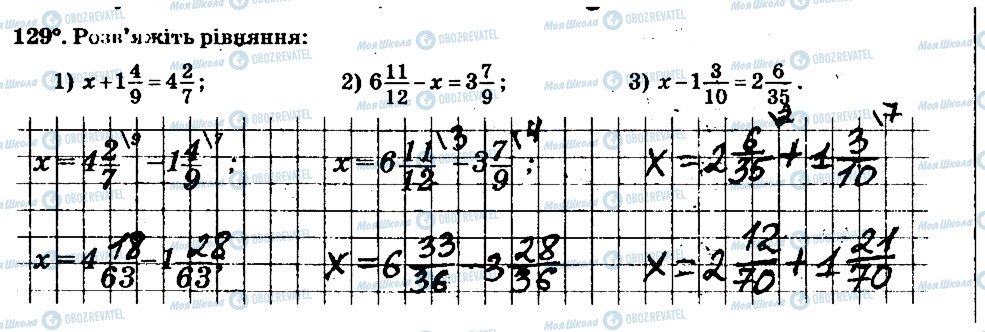 129°. Розв'яжіть рівняння:
1) x+1 4/9 = 4 2/7; 2) 6 11/12 − x = 3 7/9; 3) x−1 3/10 = 2 6/35.
x = 4 2/7 \9 − 1 4/9 \7; x = 6 11/12 \3 − 3 7/9 \4; x = 2 6/35 \2 + 1 3/10 \7
x = 4 18/63 − 1 28/63; x = 6 33/36 − 3 28/36 x = 2 12/70 + 1 21/70